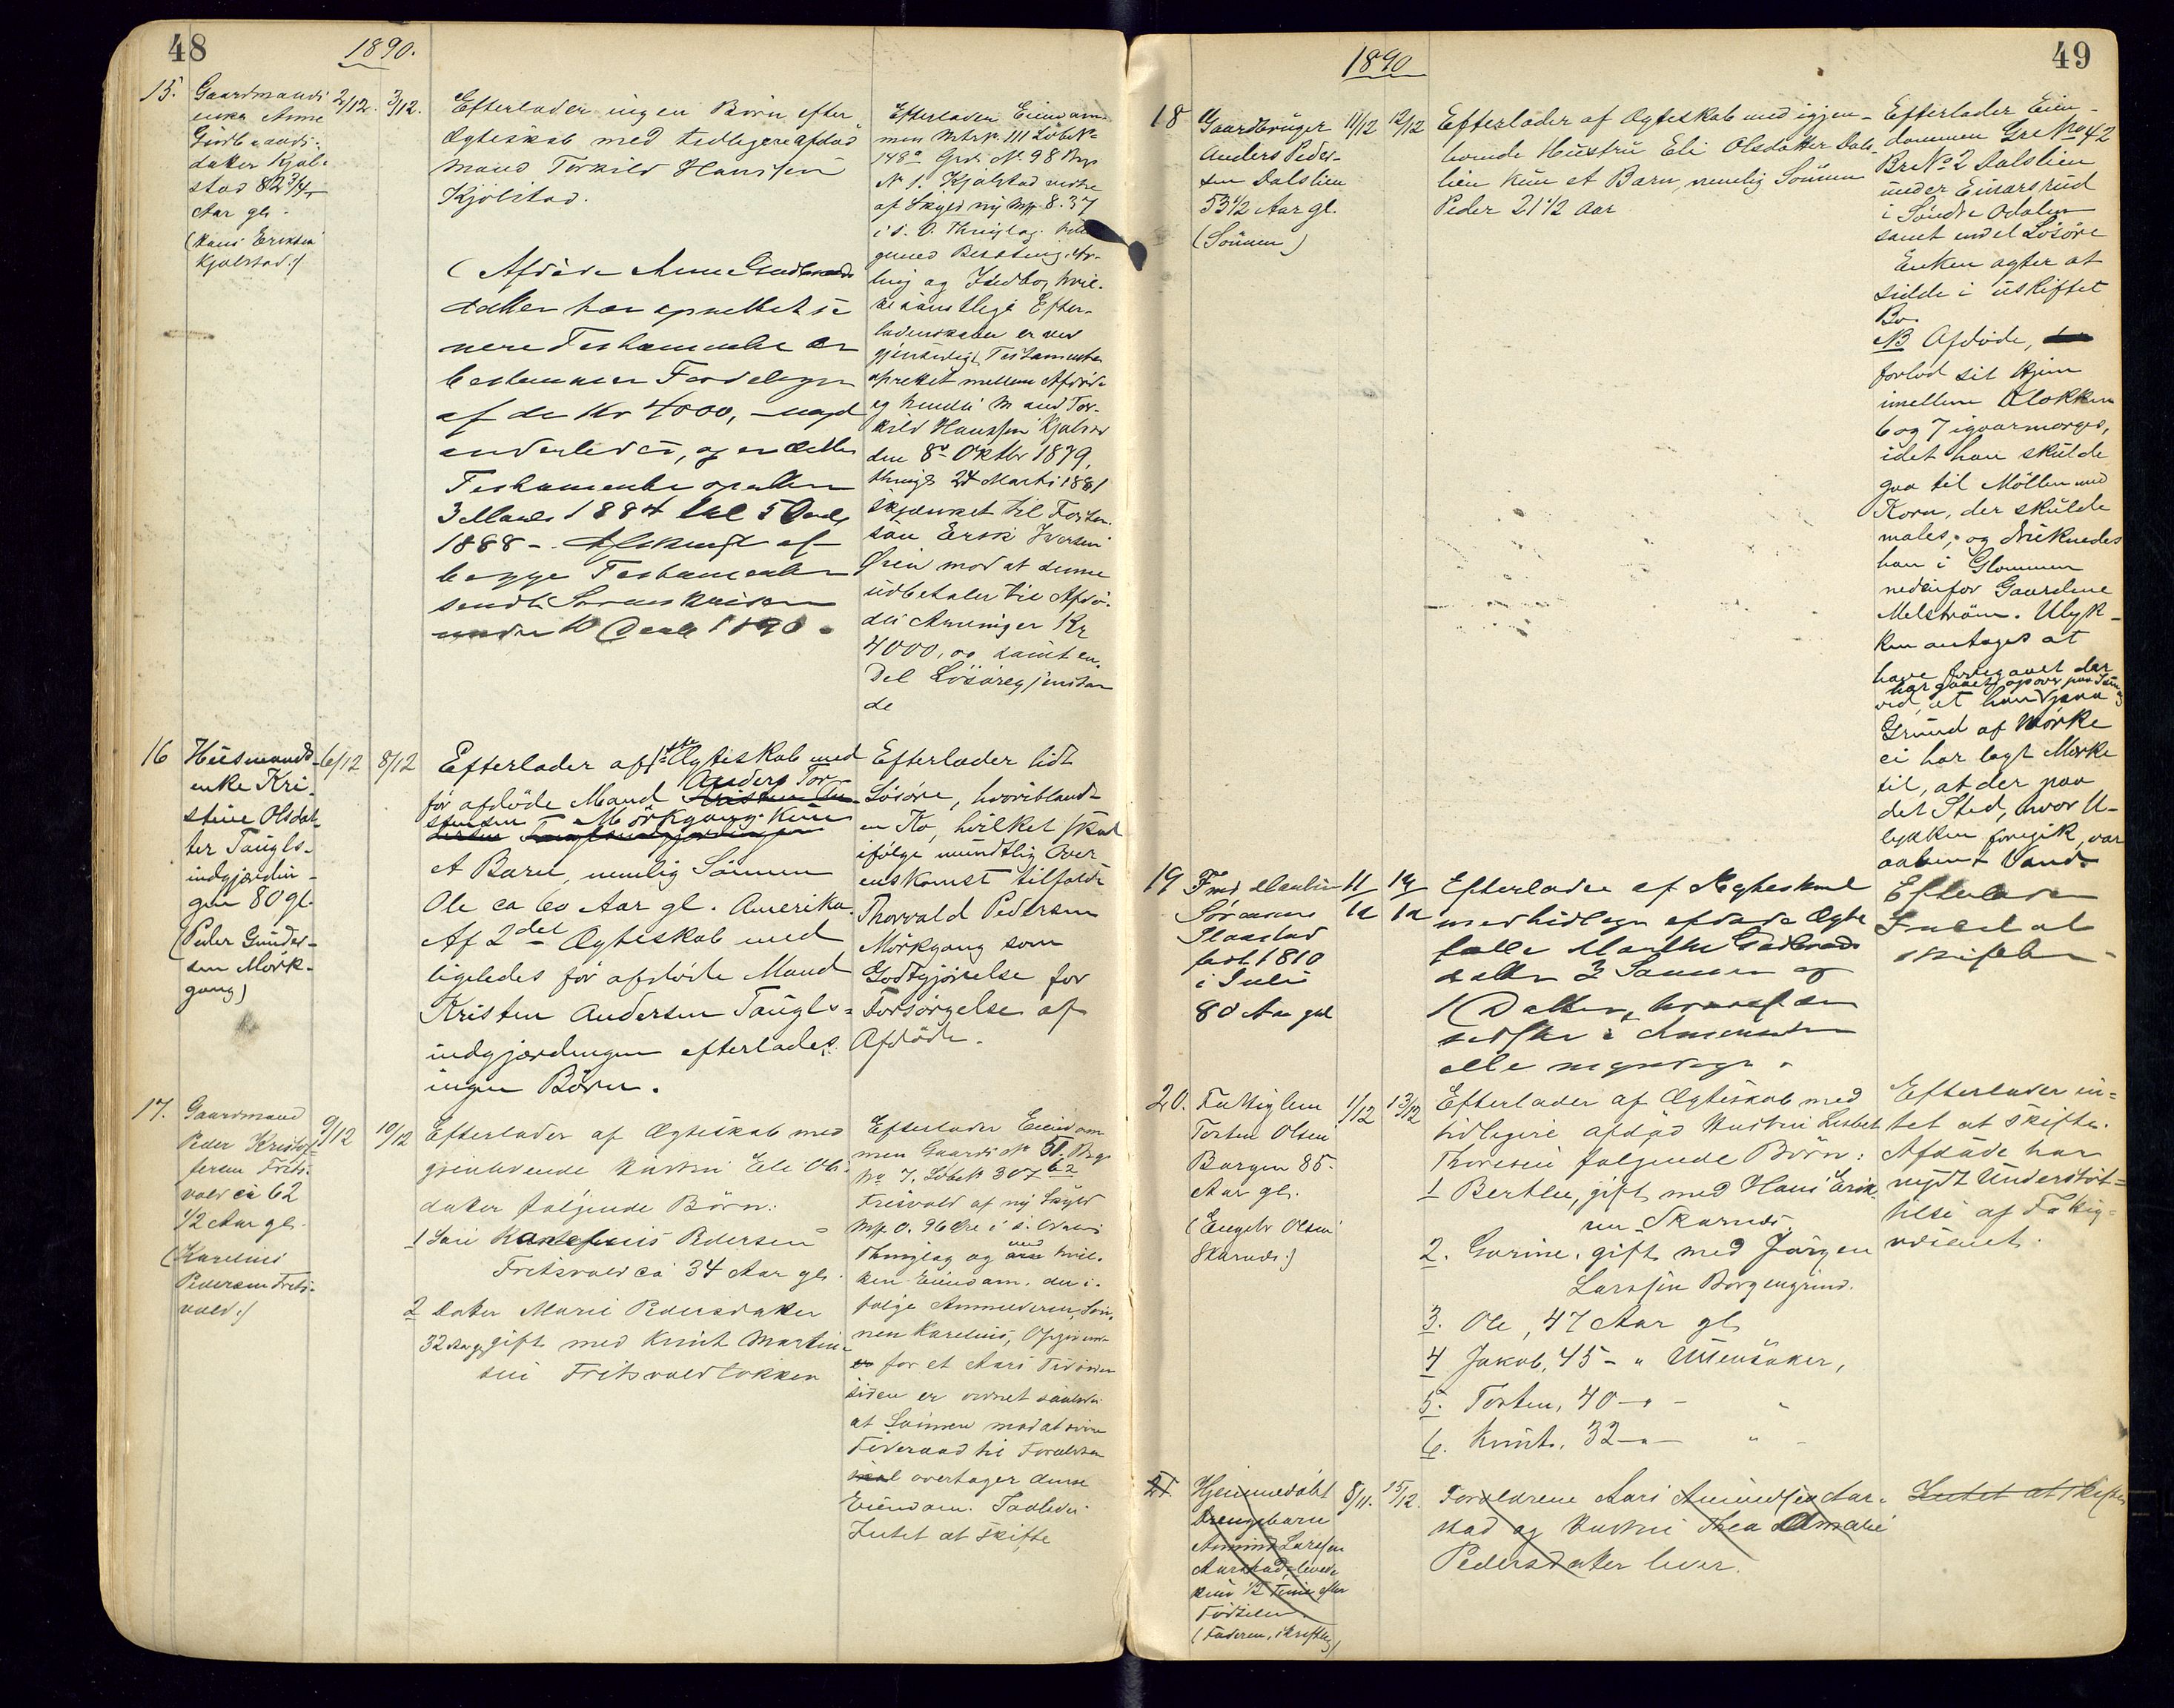 48
1890.
15.
Gaardmands
enke Anne
Gudbrands-
datter Kjøl-
stad 82 3/4
Aar gl.
(Hans Eriksen
Kjølstad.)
2/12.
3/12.
Efterlader ingen Børn efter
Ægteskab med tidligere afdød
Mand Torkild Hanssen
Kjølstad.
(Afdøde Anne Gudbrands
datter har oprettet se
nere Testamente
bestemmer Fordelingen
af de Kr 4000,
anderledes, og er dette
Testamente oprettet
3 Marts 1884 5
1888 -. af
begge Testamenter
sendt Sorenskriveren
under 10 1890.
Efterlader Eiendom
men Mtr. N. 111 Løbe N.
148a Grds No 98 Brgs
N 1. Kjølstad nedre
af Skyld ny Mp. 8.37
i S. O. Thinglag.
gumed Besætning, Av-
ling og Indbo, hvil-
ke samtlige Efter-
ladenskaber er ved
gjensidigt Testamente
oprettet mellem Afdøde
og hendes Mand Tor-
kild Hanssen Kjølstad
den 8de Oktbr 1879,
thingl. 24 Marts 1881
skjænket til Foster-
søn Erik Iversen
Øien mod at denne
udbetaler til Afdø-
des Arvinger Kr
4000, og samt en
Del Løsøregjenstan
de
16
Husmands-
enke Kri-
stine Olsdat-
ter Taugls-
indgjærdin-
gen 80 gl.
(Peder Gunder-
sen Mørk-
gang)
6/12
8/12
Efterlader af 1ste Ægteskab med
før afdøde Mand Anders Tor-
stensen Mørkgang kun
et Barn, nemlig Sønnen
Ole ca 60 Aar gl. Amerika.
Af 2det Ægteskab med
ligeledes før afdøde Mand
Kristen Andersen Taugls-
indgjærdingen efterlades
ingen Børn.
Efterlader lidt
Løsøre, hvoriblandt
en Ko, hvilket skal
ifølge mundtlig Over
enskomst tilfalde
Thorvald Pedersen
Mørkgang som
Godtgjørelse for
Forsørgelse af
Afdøde.
17.
Gaardmand
Peder Kristof-
fersen Frits-
vold ca 62
1/2 Aar gl.
(Karelius
Pedersen Frits-
vold.)
9/12
10/12
Efterlader af Ægteskab med
gjenlevende Hustru Eli Ols-
datter følgende Børn:
1 Søn Karelius Pedersen
Fritsvold ca 34 Aar gl.
2 Datter Marie Pedersdatter
32 Aar gl gift med Knut Martin-
sen Fritsvoldløkken
Efterlader Eiendom
men Gaards No 51. Brgs
No 7, Løbe No 307 62
Fritsvold af ny Skyld
Mp 0. 96 Øre i S. Odalens
Thinglag og med hvil-
ken Eiendom, den i-
følge Anmelderen, Søn-
nen Karelius, Opgivende
for et Aars Tid
siden er ordnet saaledes
at Sønnen mod at svare
Føderaad til Forældrene
skal overtager denne
Eiendom. Saaledes
Intet at skifte
49
1890
18
Gaardbruger
Anders Peder-
sen Dalslien
53 1/2 Aar gl.
(Sønnen)
11/12
12/12
Efterlader af Ægteskab med igjen-
levende Hustru Eli Olsdatter Dals-
lien kun et Barn, nemlig Sønnen
Peder 21 1/2 Aar
Efterlader Eien-
dommen Gre No 42
Br No 2 Dalslien
under Einarsrud
i Søndre Odalen
samt endel Løsøre
Enken agter at
sidde i uskiftet
Bo.
NB Afdøde,
forlod sit Hjem
imellem Klokken
6 og 7 igaarmorges,
idet han skulde
gaa til Møllen med
Korn, der skulde
males, og druknedes
han i Glommen
nedenfor Gaardene
Melstrøm. Ulyk-
ken antages at
have foregaaet der
ved, at han har gaaet over paa Isen og paa
Grund af Mørke
ei har lagt Mærke
til, at der paa
det Sted, hvor U-
lykken foregik, var
aabent Vand.
19
Fmd
Sørensen
Slaastad
født 1810
i Juli
80 Aar gl
11/12
12/12
Efterlader af Ægteskab
med tidligere afdøde Ægte
fælle Marthe Gudbrands
datter 3 Sønner og
1 Datter, hvoraf den
sidste i Amerika

Efterlader
Intet at
skifte.
20.
Fattiglem
Torsten Olsen
Borgen 85-
Aar gl.
(Engebr Olsen
Skarnes.)
11/12
13/12
Efterlader af Ægteskab med
tidligere afdød Hustru Lisbet
Thorsen følgende Børn:
1 Berthe, gift med Hans Erik-
sen Skarnes.
2. Gurine, gift med Jørgen
Larssen Borgengrind.
3. Ole, 47 Aar gl
4 Jakob, 45 - " Ullensaker,
5. Torsten, 40 - " - "
6. Knut, 32 - " - " -
Efterlader in-
tet at skifte.
Afdøde har
nydt Understøt-
telse af Fattig-
væsenet.
21.
Hjemmedøbt
Drengebarn
Amund Larssen
Aarstad, levede
kun 1/2 Time efter
Fødselen.
(Faderen, skriftlig)
8/11.
15/12.
Forældrene Lars Amundsen Aar-
stad og Hustru Thea Amalie
Pedersdatter lever.
Intet at skifte